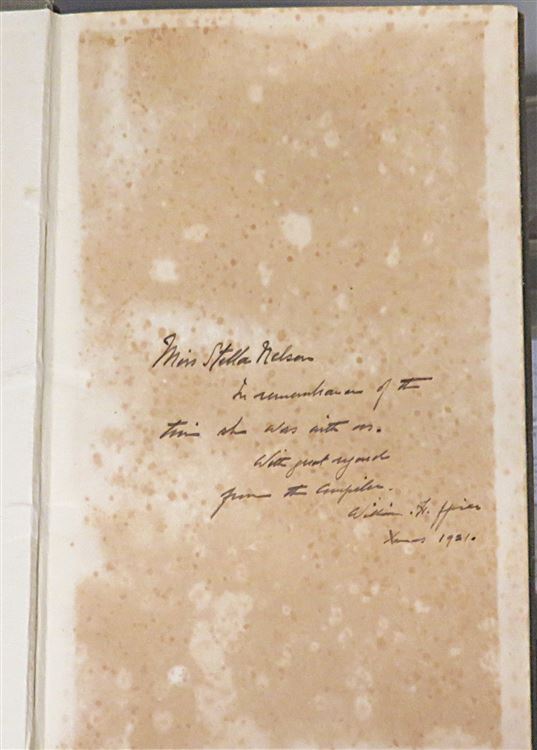 Miss Stella Nelson
In remembrance of the
time she was with us.
With great regard
from the Compiler.
William
Xmas 1921.